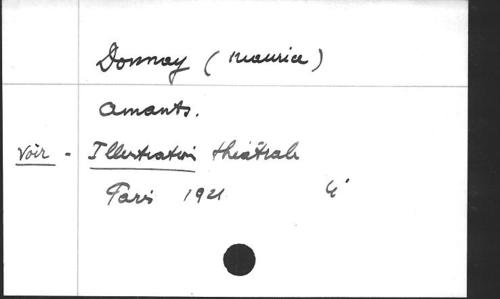 Donnay (Maurice)
Amants.
Voir - Illustration théâtrale
Paris 1921 4°